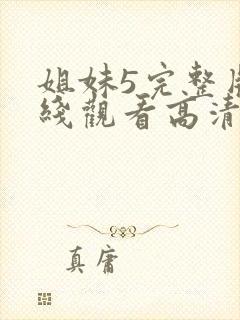 姐妹5完整
綫觀看高清
真庸